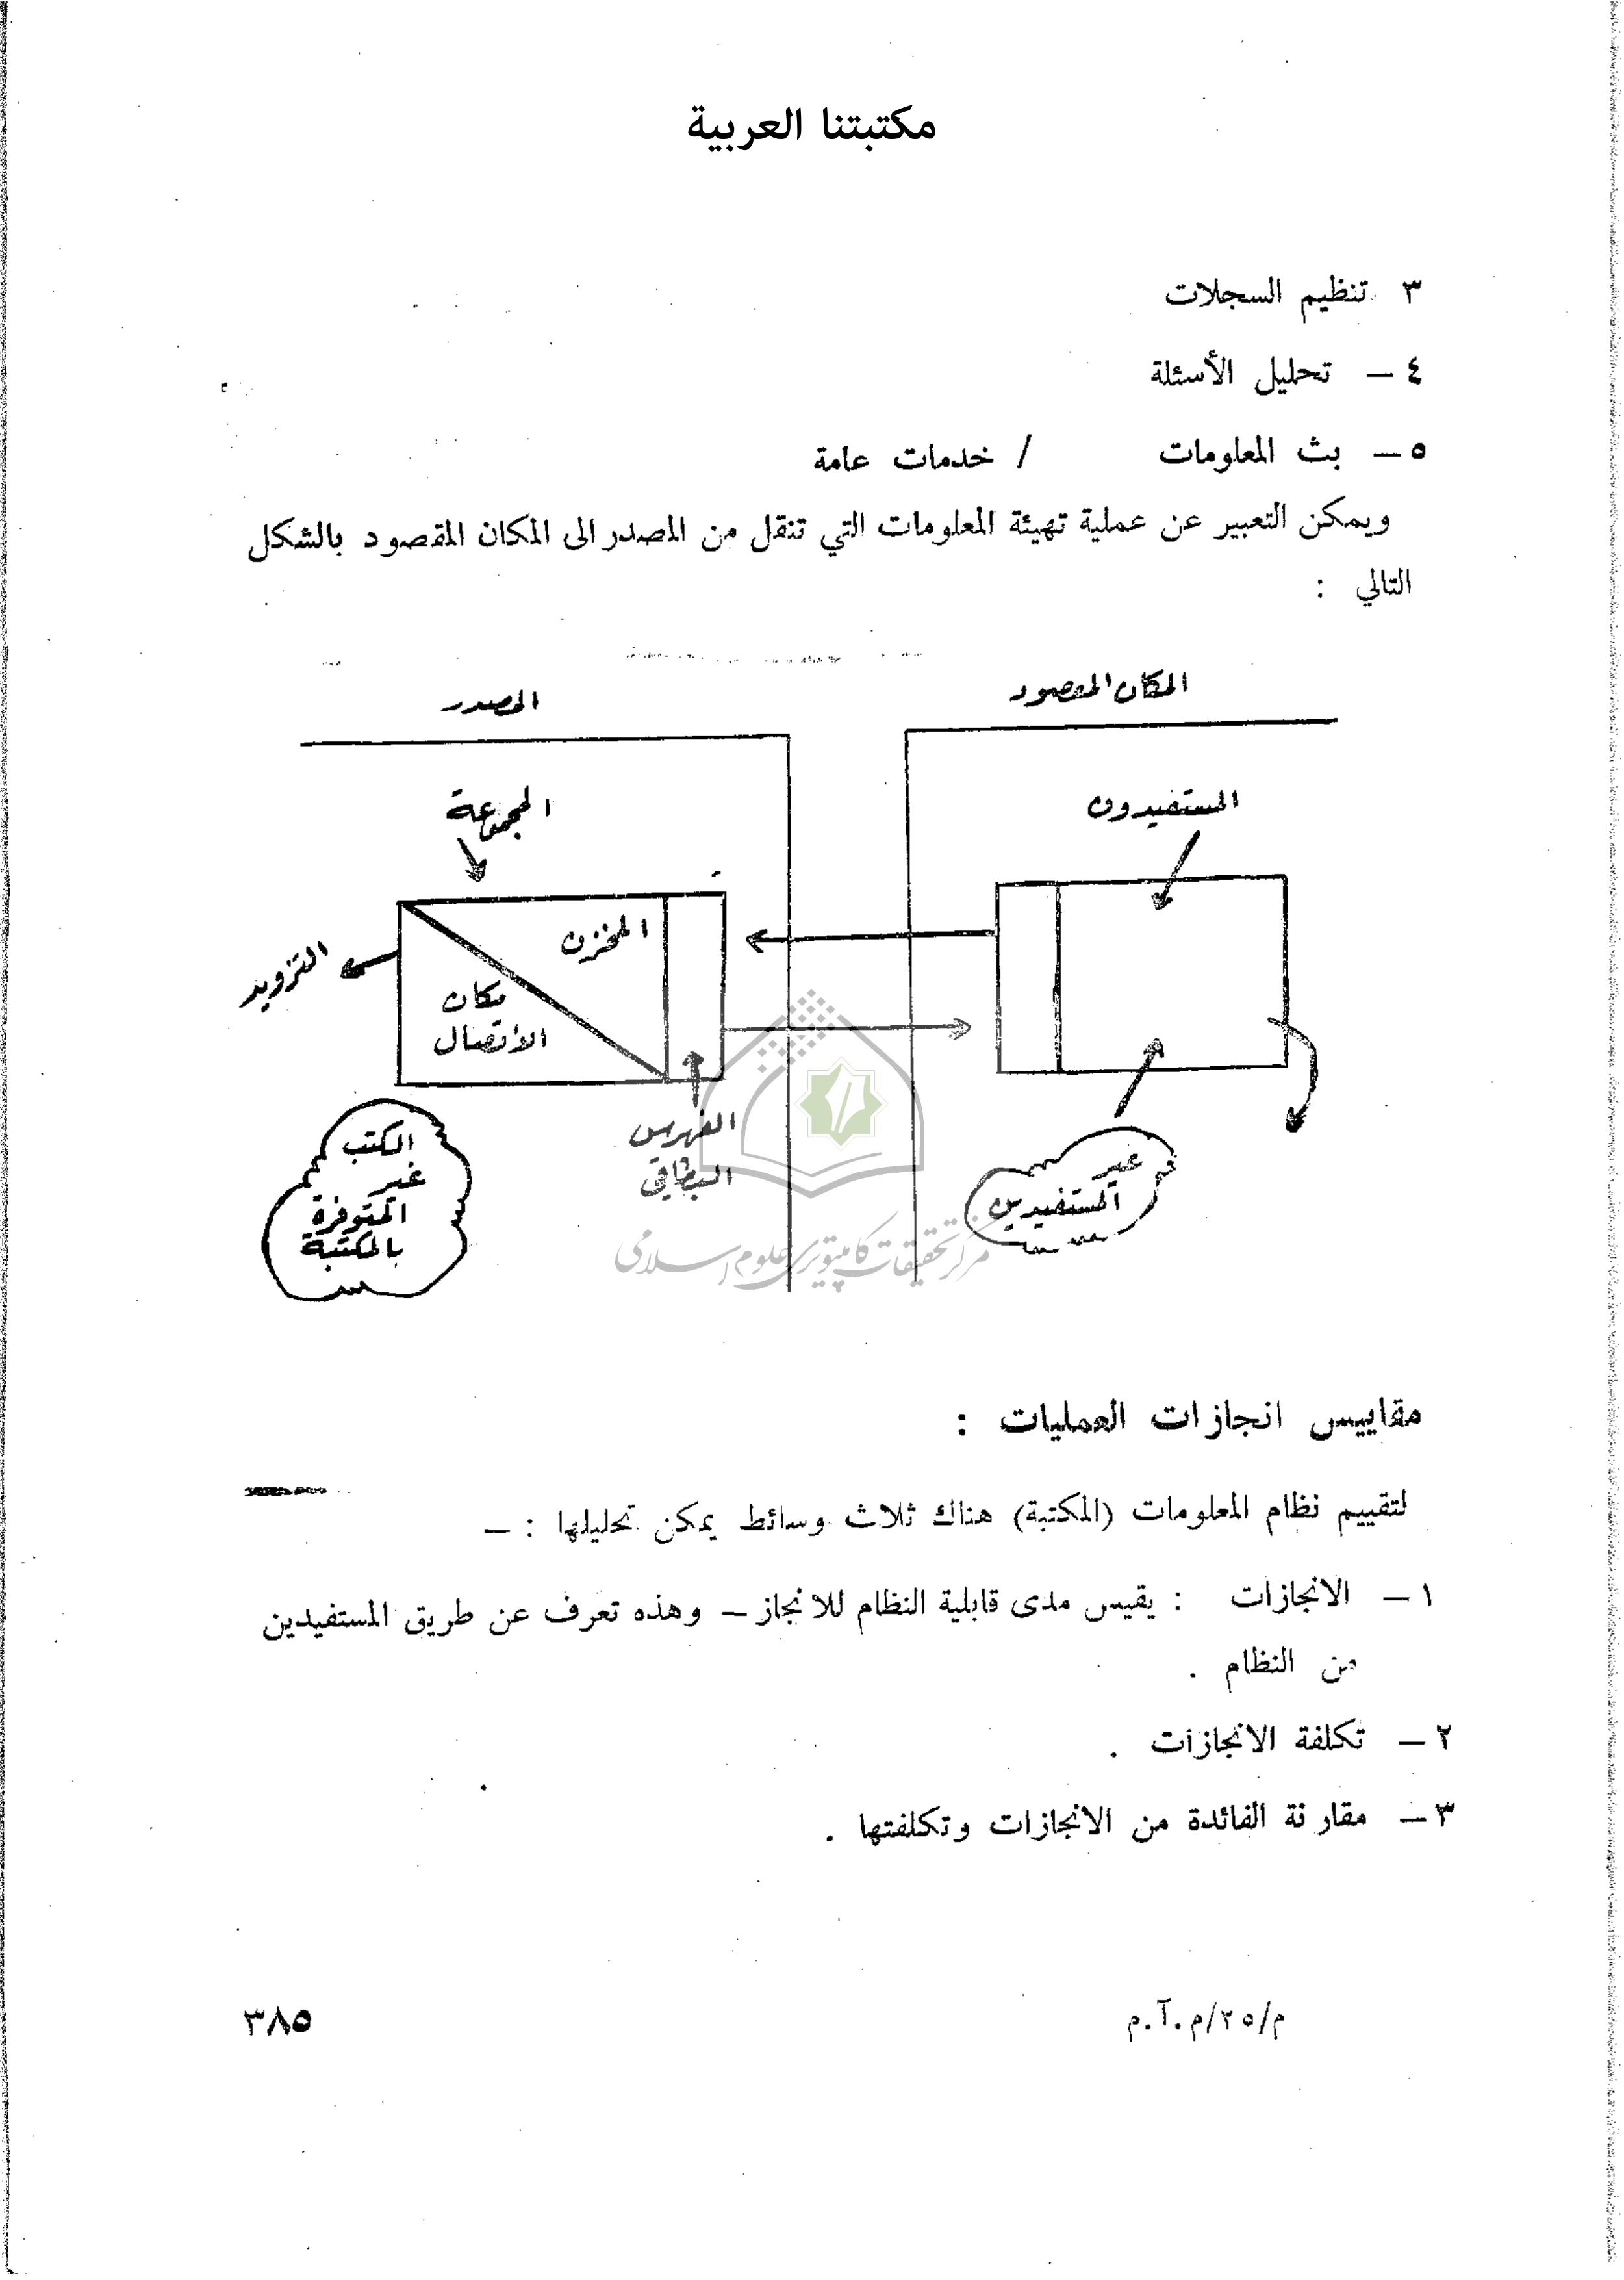 مكتبتنا العربية
٣ تنظيم السجلات
٤ – تحليل الأسئلة
٥ – بث المعلومات / خدمات عامة
ويمكن التعبير عن عملية تهيئة المعلومات التي تنقل من المصدر الى المكان المقصود بالشكل
التالي :
المكان المقصود
المصدر
المستفيدون
المجموعة
المخزن
مكان
الاتصال
التزويد
الفهرس
البطاقي
غير
المستفيدين
الكتب
غير
المتوفرة
بالمكتبة
مركز تحقيقات كامپيوتری علوم اسلامی
مقاييس انجازات العمليات :
لتقييم نظام المعلومات (المكتبة) هناك ثلاث وسائط يمكن تحليلها : –
١ – الانجازات : يقيس مدى قابلية النظام للانجاز – وهذه تعرف عن طريق المستفيدين
من النظام .
٢ – تكلفة الانجازات .
٣ – مقارنة الفائدة من الانجازات وتكلفتها .
م/٢٥/م.آ.م
٣٨٥